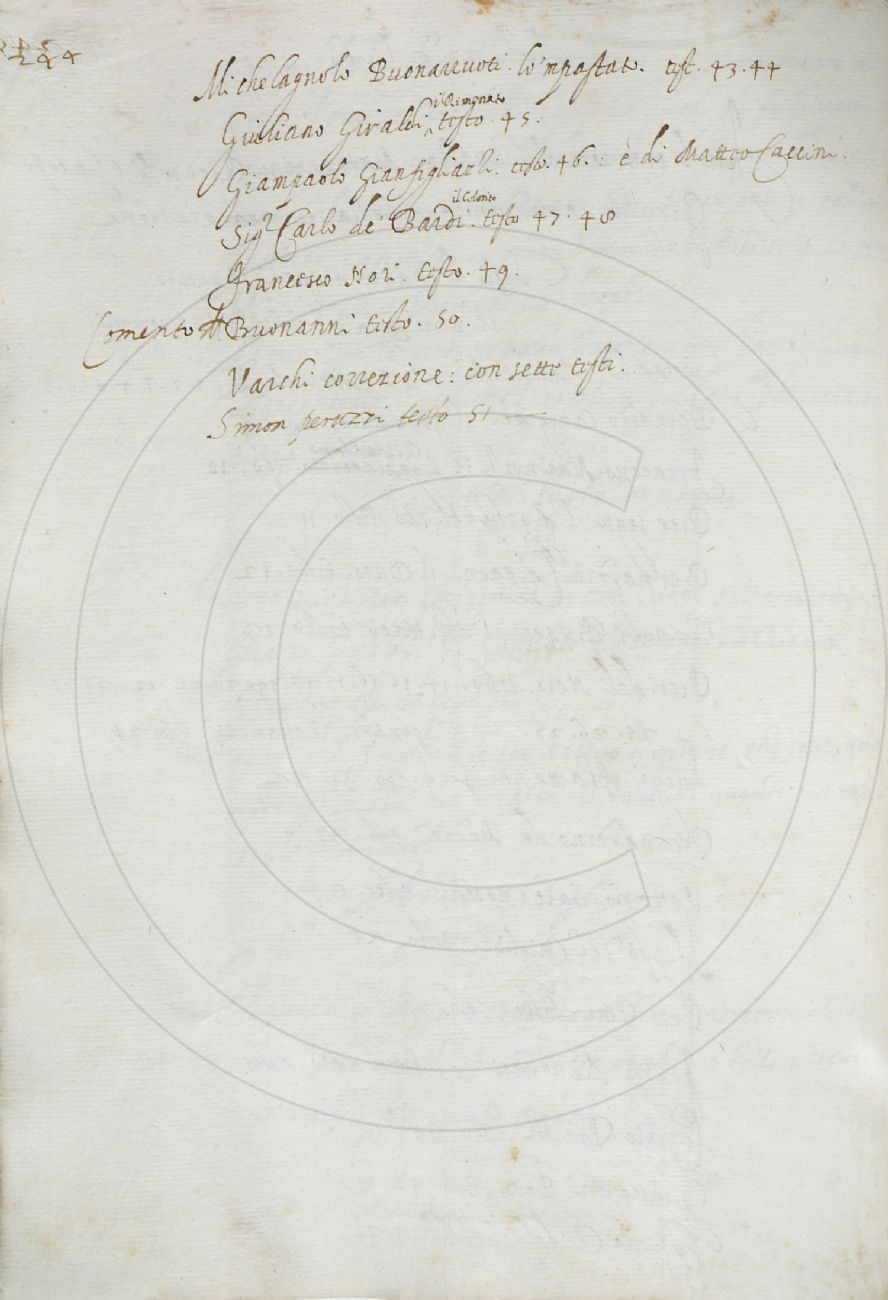 Michelagnolo Buonarruoti. lo 'mpastato. test. 43. 44
Giuliano Giraldi il Rimenato testo 45.
Giampaolo Gianfigliazzi. testo. 46. : è di Matteo Caccini.
Sig.r Carlo de' Bardi. testo 47. 48
Francesco Nori. testo. 49.
Comento Buonanni testo. 50.
Varchi correzione: con sette testi.
Simon peruzzi testo 51